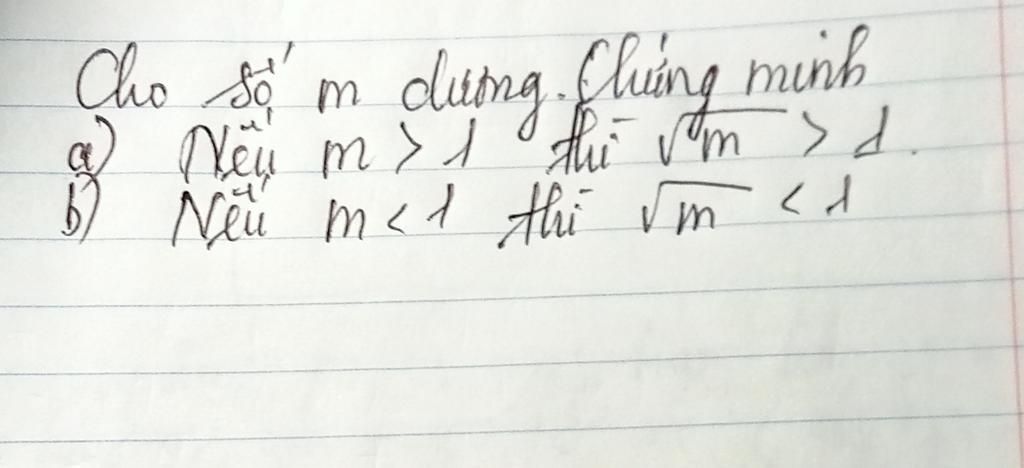 Cho số m dương. Chứng minh
a) Nếu m > 1 thì √m > 1.
b) Nếu m < 1 thì √m < 1